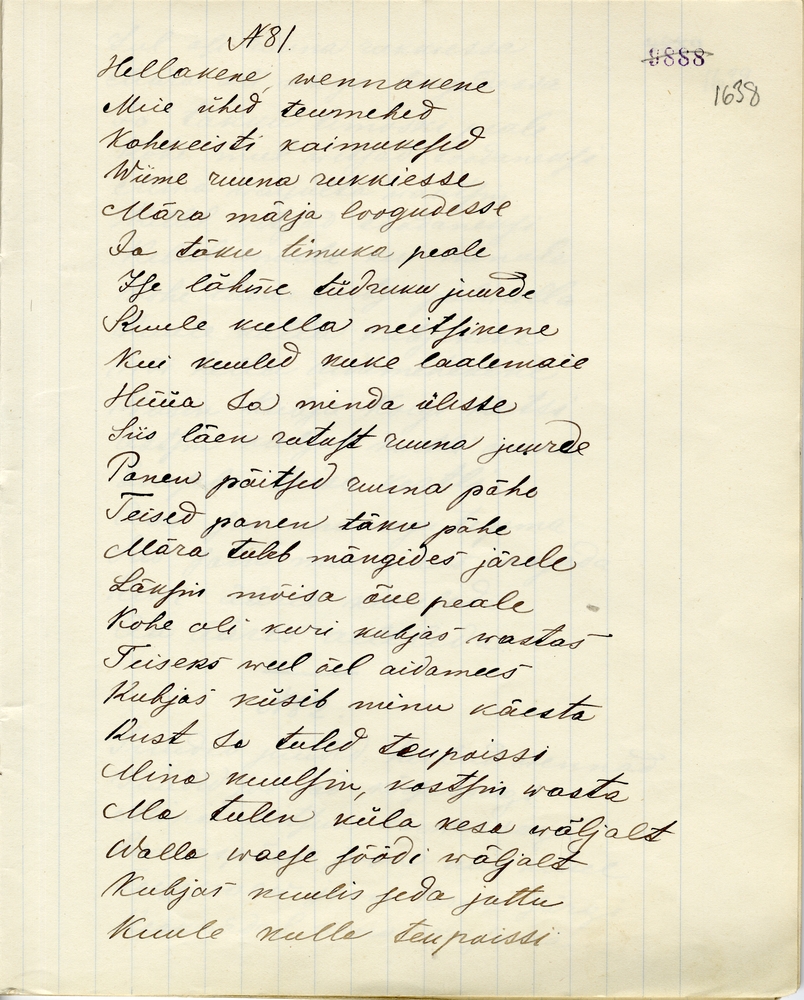 N 81.
9888
1638
Hellakene, wennakene
Miie ühed teumehed
Kohekeisti kaimukesed
Wiime ruuna rukkiesse
Mära märja loogudesse
Ja täku timuka peale
Ise lähme tüdruku juurde
Kuule kulla neitsikene
Kui kuuled kuke laulemaie
Hüüa sa minda ülesse
Siis läen ratast ruuna juurde
Panen päitsed ruuna pähe
Teised panen täku pähe
Mära tuleb mängides järele
Läksin mõisa õue peale
Kohe oli kuri kubjas wastas
Teiseks weel õel aidamees
Kubjas küsib minu käesta
Kust sa tuled teupoissi
Mina kuulsin, kostsin wasta
Ma tulen küla kesa wäljalt
Walla waese söödi wäljalt
Kubjas kuulis seda juttu
Kuule kulla teupoissi